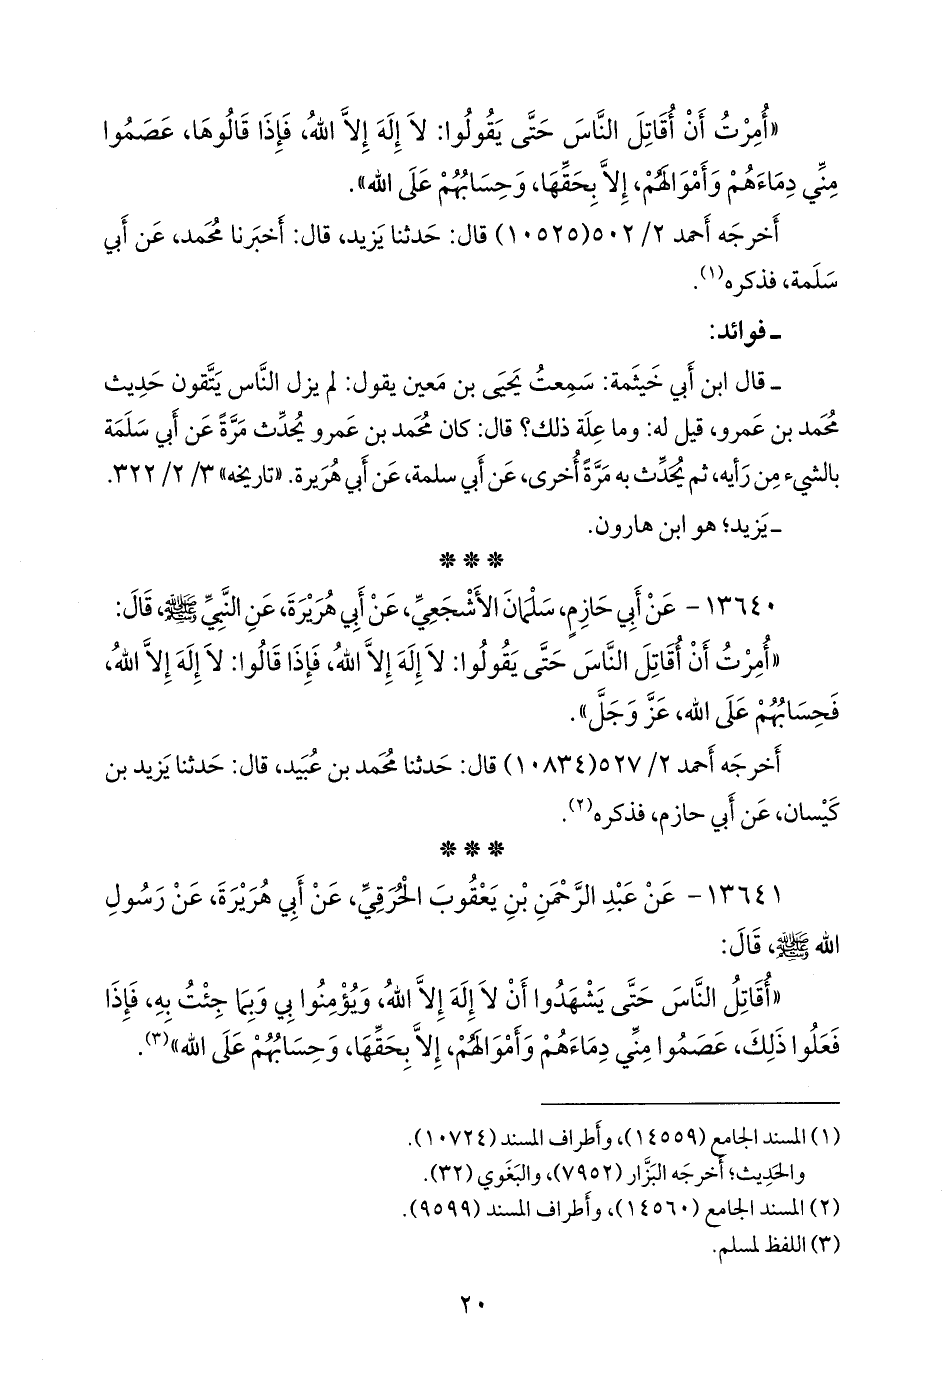 «أُمِرْتُ أَنْ أُقَاتِلَ النَّاسَ حَتَّى يَقُولُوا: لاَ إِلَهَ إِلاَّ اللهُ، فَإِذَا قَالُوهَا، عَصَمُوا
مِنِّي دِمَاءَهُمْ وَأَمْوَالَهُمْ، إِلاَّ بِحَقِّهَا، وَحِسَابُهُمْ عَلَى الله».
أَخرجَه أَحمد ٢/ ٥٠٢(١٠٥٢٥) قال: حَدثنا يَزيد، قال: أَخبَرنا مُحمد، عَن أَبي
سَلَمة، فذكره(١).
ـ فوائد:
ـ قال ابن أَبي خَيثمة: سَمِعتُ يَحيَى بن مَعين يقول: لم يزل النَّاس يَتَّقون حَدِيث
مُحمد بن عَمرو، قيل له: وما عِلَة ذلك؟ قال: كان مُحمد بن عَمرو يُحدِّث مَرَّةً عَن أَبي سَلَمَة
بالشيء مِن رَأيه، ثم يُحَدِّث به مَرَّةً أُخرى، عَن أَبي سلمة، عَن أَبي هُرَيرة. «تاريخه» ٣/ ٢/ ٣٢٢.
ـ يَزيد؛ هو ابن هارون.
* * *
١٣٦٤٠- عَنْ أَبِي حَازِمٍ، سَلْمَانَ الأَشْجَعِيِّ، عَنْ أَبِي هُرَيْرَةَ، عَنِ النَّبِيِّ ﷺ، قَالَ:
«أُمِرْتُ أَنْ أُقَاتِلَ النَّاسَ حَتَّى يَقُولُوا: لاَ إِلَهَ إِلاَّ اللهُ، فَإِذَا قَالُوا: لاَ إِلَهَ إِلاَّ اللهُ،
فَحِسَابُهُمْ عَلَى الله، عَزَّ وَجَلَّ».
أَخرجَه أَحمد ٢/ ٥٢٧(١٠٨٣٤) قال: حَدثنا مُحمد بن عُبَيد، قال: حَدثنا يَزيد بن
كَيْسان، عَن أَبي حازم، فذكره(٢).
* * *
١٣٦٤١- عَنْ عَبْدِ الرَّحْمَنِ بْنِ يَعْقُوبَ الْحُرَقِيِّ، عَنْ أَبِي هُرَيْرَةَ، عَنْ رَسُولِ
الله ﷺ، قَالَ:
«أُقَاتِلُ النَّاسَ حَتَّى يَشْهَدُوا أَنْ لاَ إِلَهَ إِلاَّ اللهُ، وَيُؤْمِنُوا بِي وَبِمَا جِئْتُ بِهِ، فَإِذَا
فَعَلُوا ذَلِكَ، عَصَمُوا مِنِّي دِمَاءَهُمْ وَأَمْوَالَهُمْ، إِلاَّ بِحَقِّهَا، وَحِسَابُهُمْ عَلَى الله»(٣).
(١) المسند الجامع (١٤٥٥٩)، وأَطراف المسند (١٠٧٢٤).
والحَدِيث؛ أَخرجَه البَزَّار (٧٩٥٢)، والبَغَوي (٣٢).
(٢) المسند الجامع (١٤٥٦٠)، وأَطراف المسند (٩٥٩٩).
(٣) اللفظ لمسلم.
٢٠